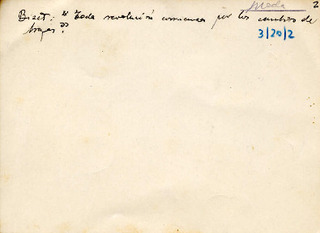 Moda 2
Bizet: "Toda revolución comienza por los cambios de
trajes".
3/20/2